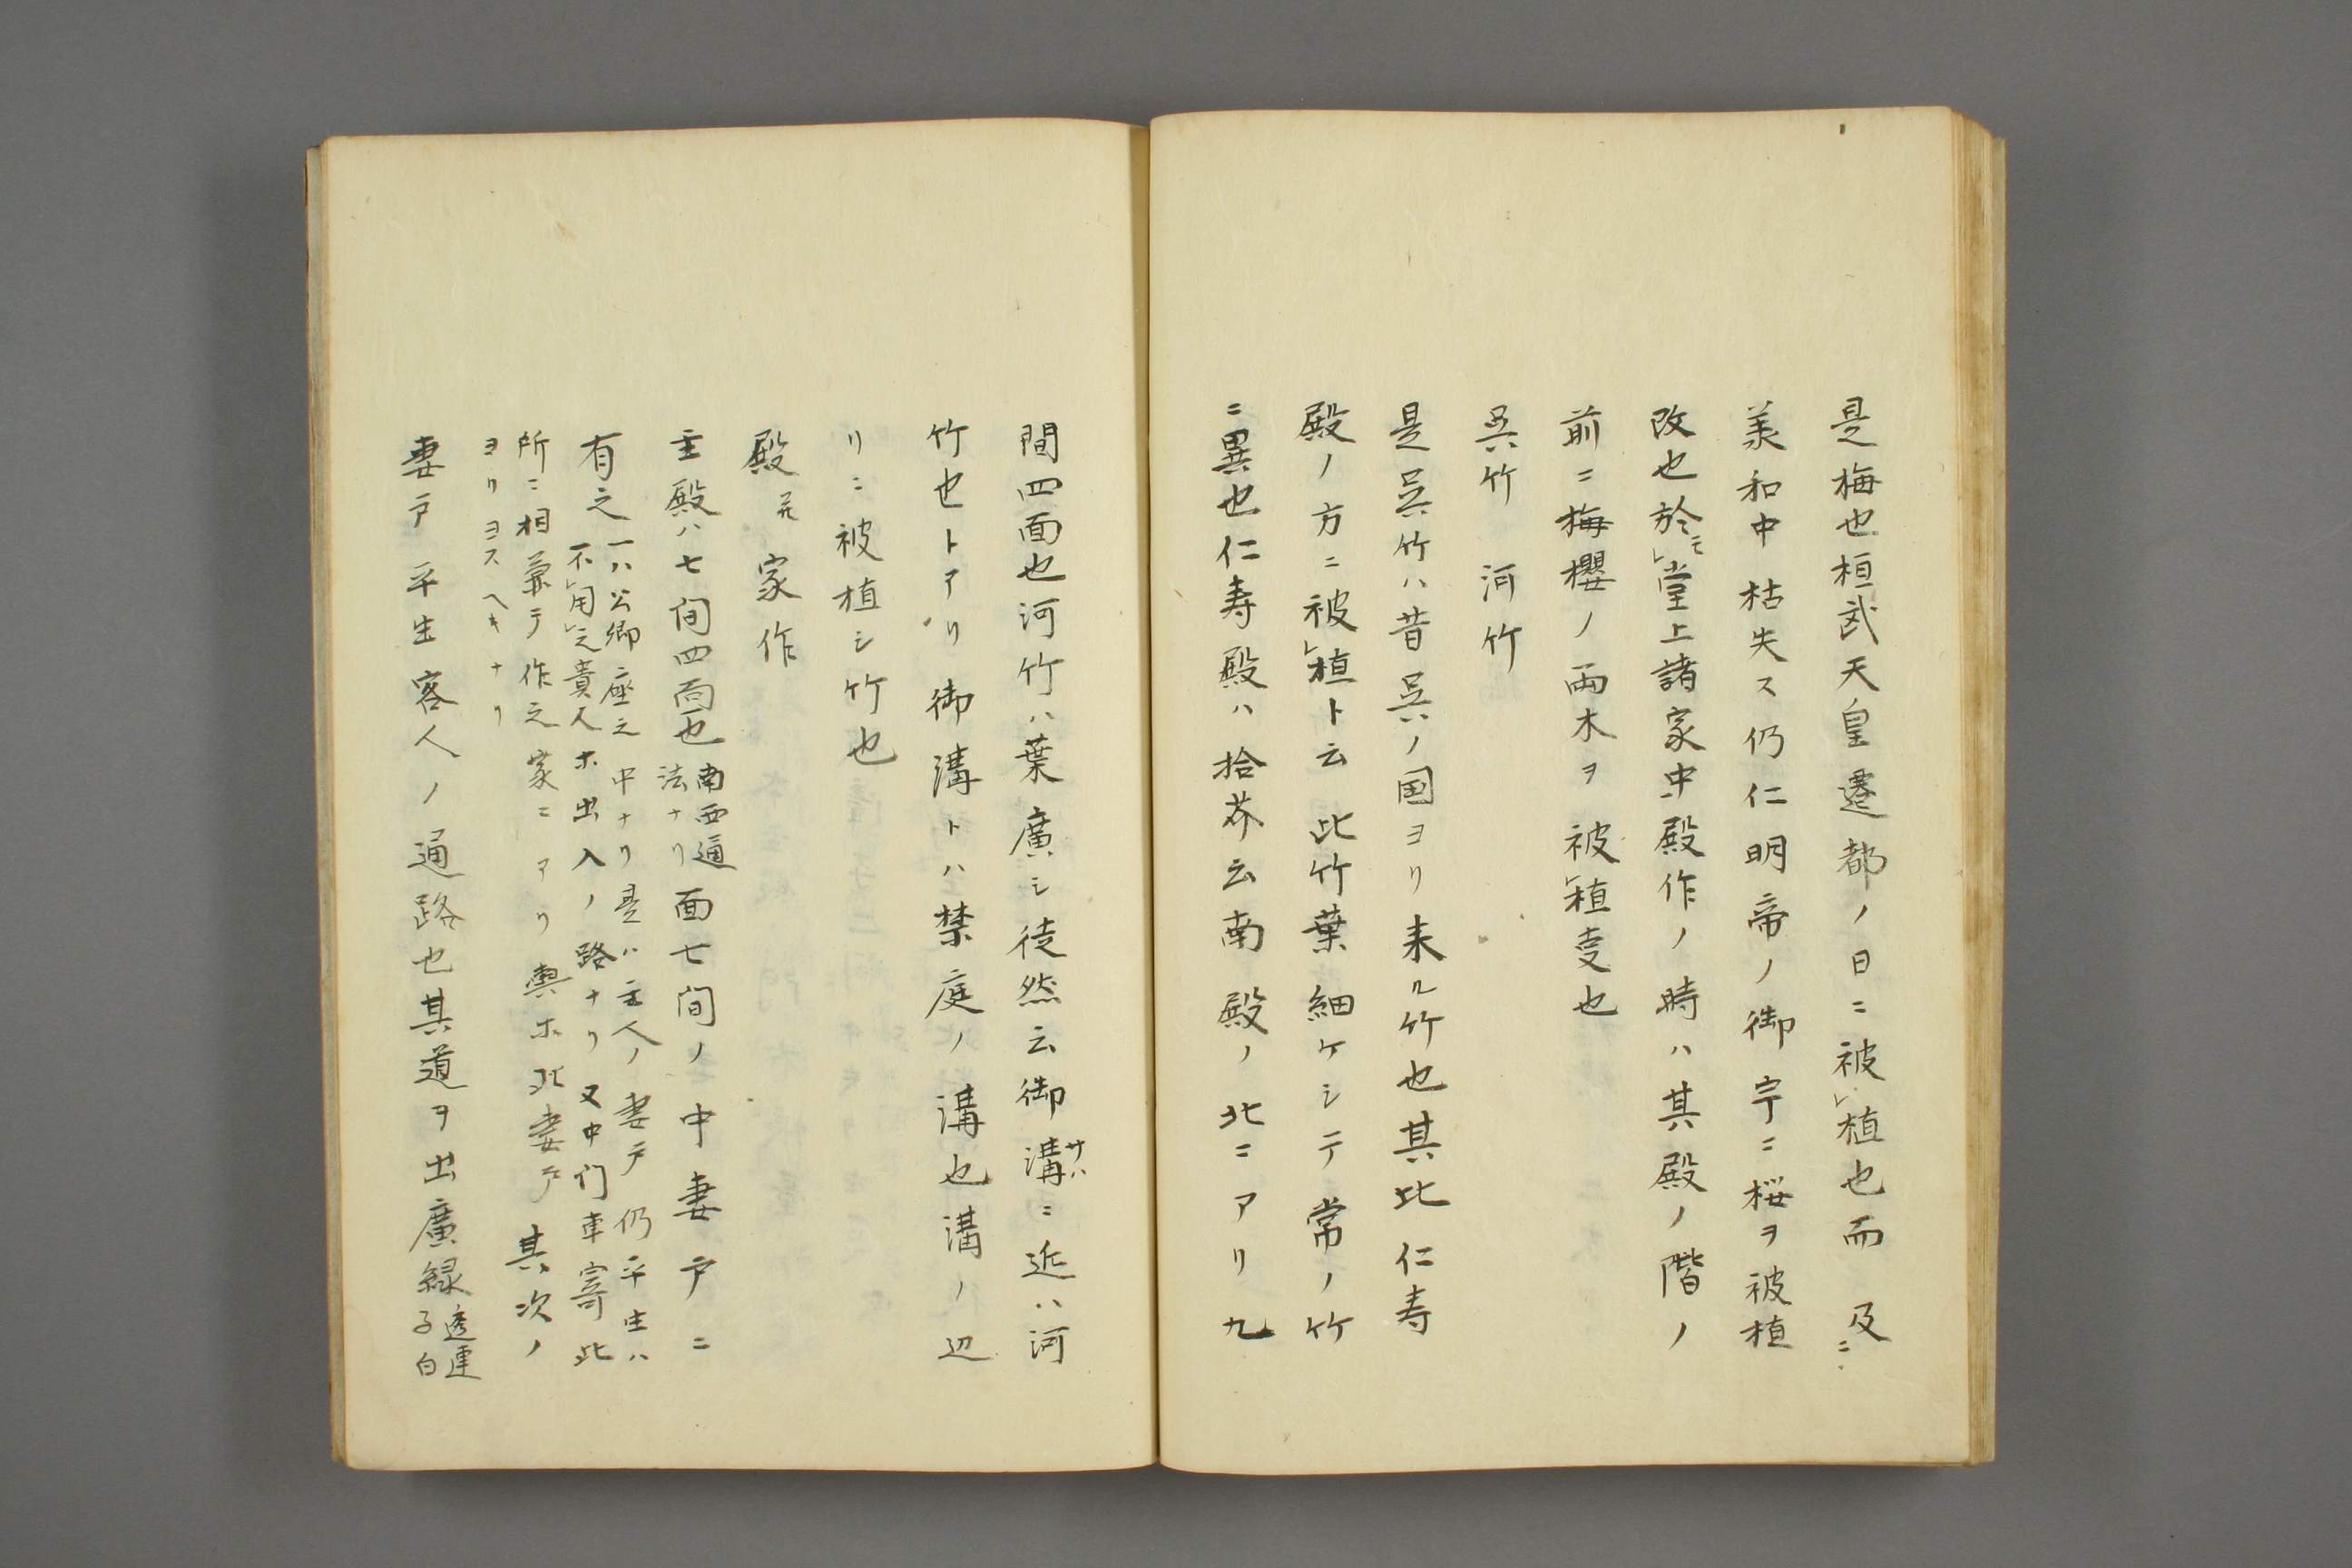 是梅也桓武天皇遷都ノ日ニ被㆑植也而及ニ
美和中枯失ス仍仁明帝ノ御宇ニ桜ヲ被植
改也於モ㆑堂上諸家中殿作ノ時ハ其殿ノ階ノ
前ニ梅櫻ノ両木ヲ被㆑植㕝也
呉竹　河竹
是呉竹ハ昔呉ノ国ヨリ来ル竹也其比仁寿
殿ノ方ニ被㆑植ト云此竹葉細ケシテ常ノ竹
ニ異也仁寿殿ハ拾芥云南殿ノ北ニアリ九
間四面也河竹ハ葉廣シ徒然云御溝ニ近ハ河
サハ
竹也トアリ御溝トハ禁庭ノ溝也溝ノ辺
リニ被植シ竹也
殿并家作
主殿ハ七间四面也
南西通
法ナリ
面七間ノ中妻戸ニ
有之
一ハ公卿座之中ナリ是ハ主人ノ妻戸仍平生ハ
不㆑用㆑之貴人ホ出入ノ路ナリ又中门車寄此
所ニ相兼テ作之家ニアリ輿ホ此妻戸
ヨリヨスヘキナリ
其次ノ
妻戸平生客人ノ通路也其道ヲ出廣緑
透連
子白